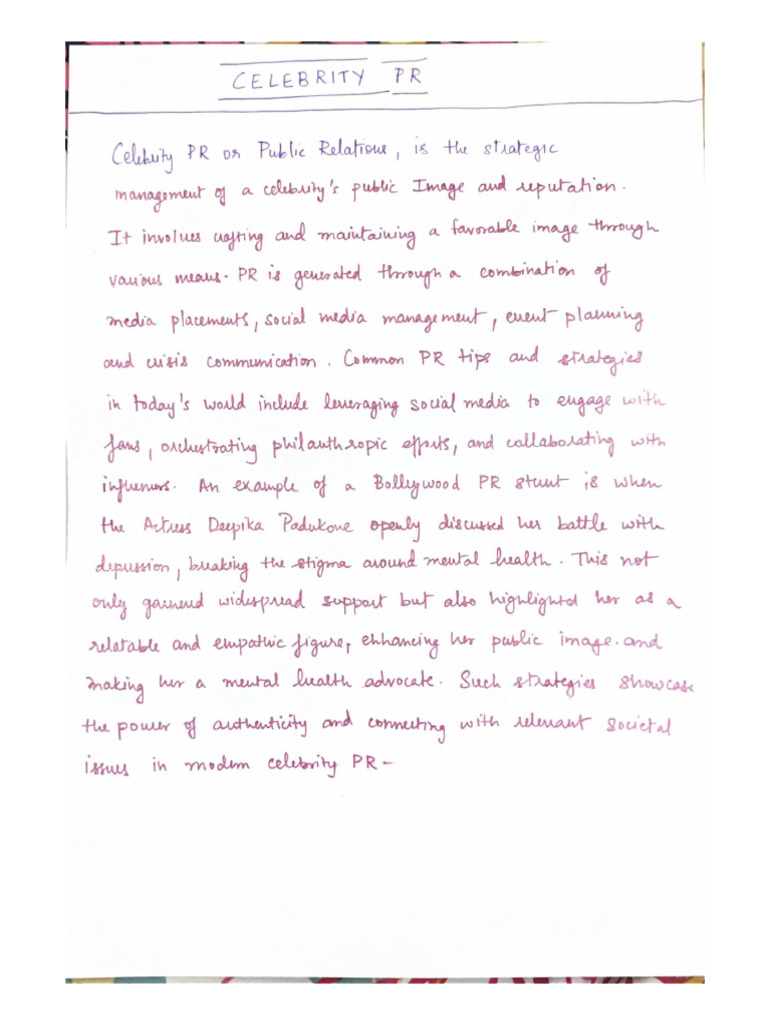 CELEBRITY PR
Celebrity PR or Public Relations, is the strategic
management of a celebrity's public Image and reputation.
It involves crafting and maintaining a favorable image through
various means. PR is generated through a combination of
media placements, social media management, event planning
and crisis communication. Common PR tips and strategies
in today's world include leveraging social media to engage with
fans, orchestrating philanthropic efforts, and collaborating with
influencers. An example of a Bollywood PR stunt is when
the Actress Deepika Padukone openly discussed her battle with
depression, breaking the stigma around mental health. This not
only garnered widespread support but also highlighted her as a
relatable and empathic figure, enhancing her public image. and
making her a mental health advocate. Such strategies showcase
the power of authenticity and connecting with relevant societal
issues in modern celebrity PR -